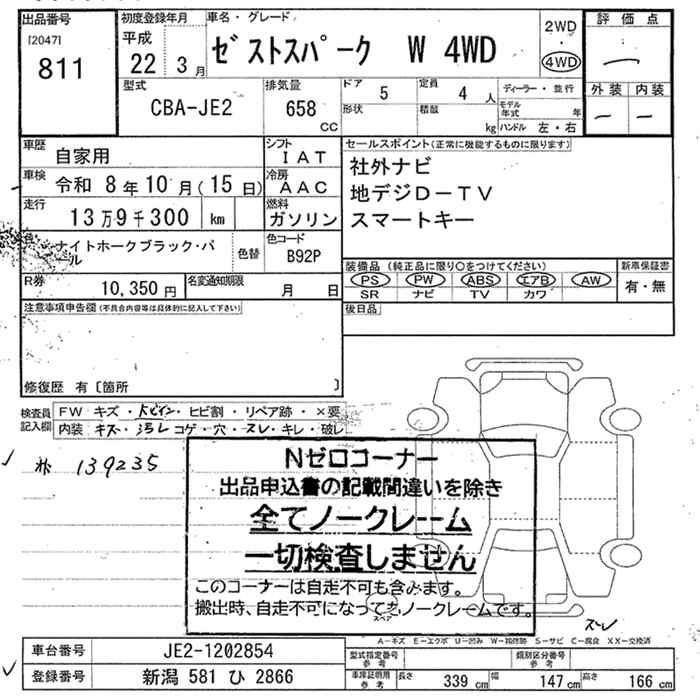 出品番号
[2047]
811
初度登録年月
平成
22 3月
車名・グレード
ゼストスパーク W 4WD
2WD
・
4WD
評価点
外装 内装
型式
CBA-JE2
排気量
658
CC
ドア
5
定員
4人
形状
積載
kg
ディーラー・並行
モデル
年式
年
ハンドル 左・右
車歴
自家用
シフト
IAT
車検
令和 8年10月(15日)
冷房
AAC
走行
13万9千300 km
燃料
ガソリン
色
ナイトホークブラック・パ
ール
色替
色コード
B92P
R券
10,350円
名変通知期限
月 日
セールスポイント(正常に機能するものに限ります)
社外ナビ
地デジD-TV
スマートキー
装備品(純正品に限り○をつけてください)
PS PW ABS エアB AW
SR ナビ TV カワ
新車保証書
有・無
後日品
注意事項申告欄(不具合内容等は具体的に記入して下さい)
修復歴 有〔箇所 〕
検査員
記入欄
FW キズ・トビイシ・ヒビ割・リペア跡・×要
内装 キズ・汚レ コゲ・穴・スレ・キレ・破レ
139235
Nゼロコーナー
出品申込書の記載間違いを除き
全てノークレーム
一切検査しません
このコーナーは自走不可も含みます。
搬出時、自走不可になってもノークレームです。
スペア
スレ
A-キズ E-エクボ U-凹み W-補修跡 S-サビ C-腐食 XX-交換済
車台番号
JE2-1202854
登録番号
新潟 581 ひ 2866
型式指定番号
参考
類別区分番号
参考
車庫証明用
参考
長さ 339 cm 幅 147 cm 高さ 166 cm